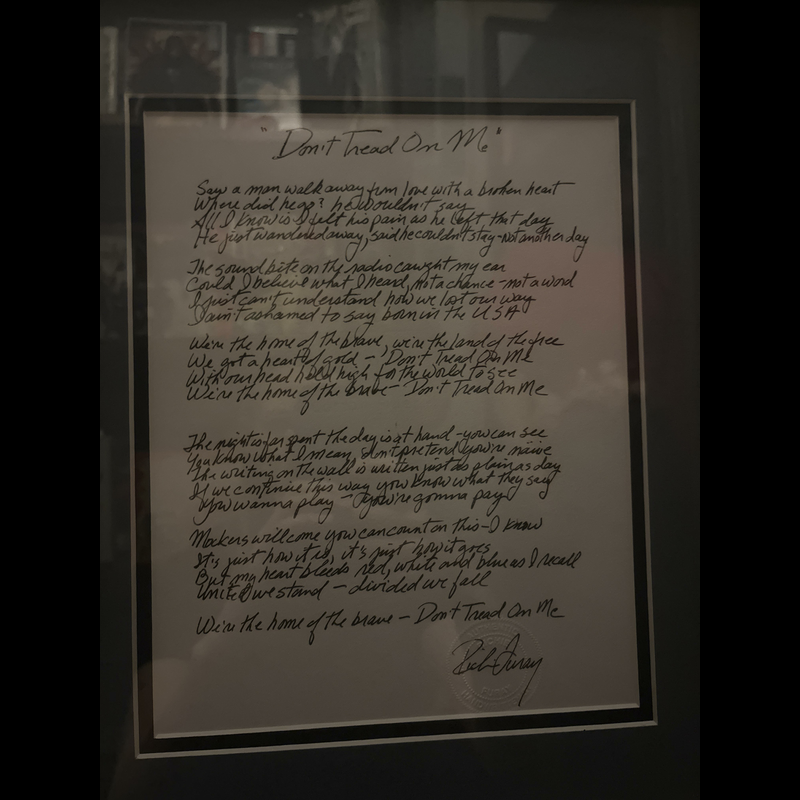 "Don't Tread On Me"
Saw a man walk away from love with a broken heart
Where did he go? he wouldn't say
All I know is I felt his pain as he left that day
He just wandered away, said he couldn't stay - not another day
The sound bite on the radio caught my ear
Could I believe what I heard, not a chance - not a word
I just can't understand how we lost our way
I ain't ashamed to say born in the USA
We're the home of the brave, we're the land of the free
We got a heart of gold - Don't Tread On Me
With our head held high for the world to see
We're the home of the brave - Don't Tread On Me
The night is far spent the day is at hand - you can see
You know what I mean, don't pretend you're naive
The writing on the wall is written just as plain as day
If we continue this way you know what they say
You wanna play - you're gonna pay
Mockers will come you can count on this - I know
It's just how it is, it's just how it goes
But my heart bleeds red, white and blue as I recall
United we stand - divided we fall
We're the home of the brave - Don't Tread On Me
Richie Furay